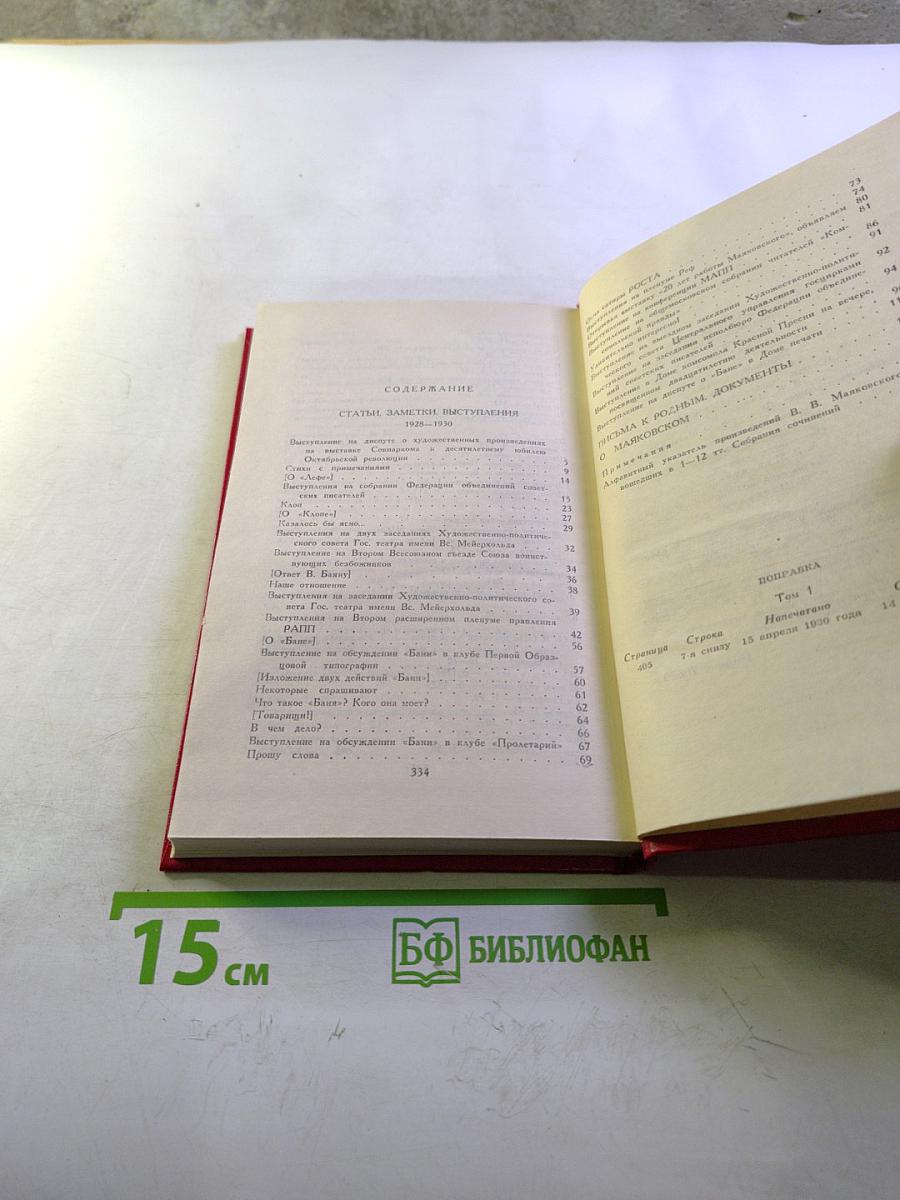 СОДЕРЖАНИЕ
СТАТЬИ, ЗАМЕТКИ, ВЫСТУПЛЕНИЯ
1928—1930
Выступление на диспуте о художественных произведениях
на выставке Совнаркома к десятилетнему юбилею
Октябрьской революции . . . 5
Стихи с примечаниями . . . 9
[О «Лефе»] . . . 14
Выступления на собрании Федерации объединений совет-
ских писателей . . . 15
Клоп . . . 23
[О «Клопе»] . . . 27
Казалось бы ясно... . . . 29
Выступления на двух заседаниях Художественно-политиче-
ского совета Гос. театра имени Вс. Мейерхольда . . . 32
Выступление на Втором Всесоюзном съезде Союза воинст-
вующих безбожников . . . 34
[Ответ В. Баяну] . . . 36
Наше отношение . . . 38
Выступления на заседании Художественно-политического со-
вета Гос. театра имени Вс. Мейерхольда . . . 39
Выступления на Втором расширенном пленуме правления
РАПП . . . 42
[О «Бане»] . . . 56
Выступление на обсуждении «Бани» в клубе Первой Образ-
цовой типографии . . . 57
[Изложение двух действий «Бани»] . . . 60
Некоторые спрашивают . . . 61
Что такое «Баня»? Кого она моет? . . . 62
[Товарищи!] . . . 64
В чем дело? . . . 66
Выступление на обсуждении «Бани» в клубе «Пролетарий» 67
Прошу слова . . . 69
334
сатиры РОСТА . . . 73
на пленуме Реф . . . 74
выставку «20 лет работы Маяковского», объявляем 80
Выступление на конференции МАПП . . . 81
Выступление на общемосковском собрании читателей «Ком-
сомольской правды» . . . 86
Удивительно интересно! . . . 91
Выступление на выездном заседании Художественно-полити-
ческого совета Центрального управления госцирками 92
Выступление на заседании исполбюро Федерации объедине-
ний советских писателей . . . 94
Выступление в Доме комсомола Красной Пресни на вечере,
посвященном двадцатилетию деятельности
Выступление на диспуте о «Бане» в Доме печати
ПИСЬМА К РОДНЫМ. ДОКУМЕНТЫ
О МАЯКОВСКОМ
Примечания
Алфавитный указатель произведений В. В. Маяковского
вошедших в 1—12 тт. Собрания сочинений
ПОПРАВКА
Том 1
Страница Строка Напечатано
405 7-я снизу 15 апреля 1930 года 14
15 см
БФ БИБЛИОФАН